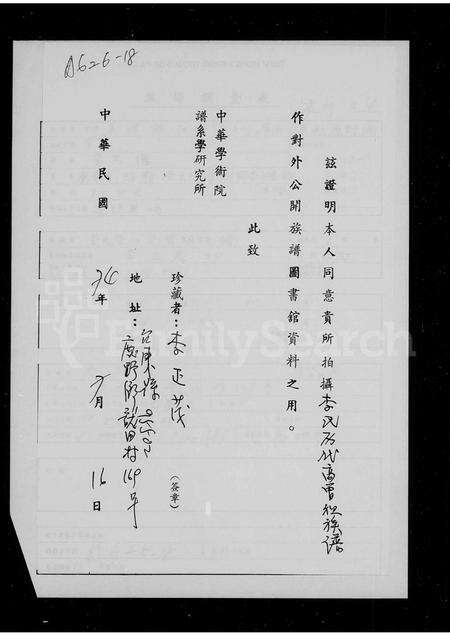 A626-18
茲證明本人同意貴所拍攝李氏歷代高曾祖族譜
作對外公開族譜圖書館資料之用。
此致
中華學術院
譜系學研究所
珍藏者：李正茂（簽章）
地址：台東縣
鹿野鄉龍田村169号
中華民國74年 月16日
FamilySearch